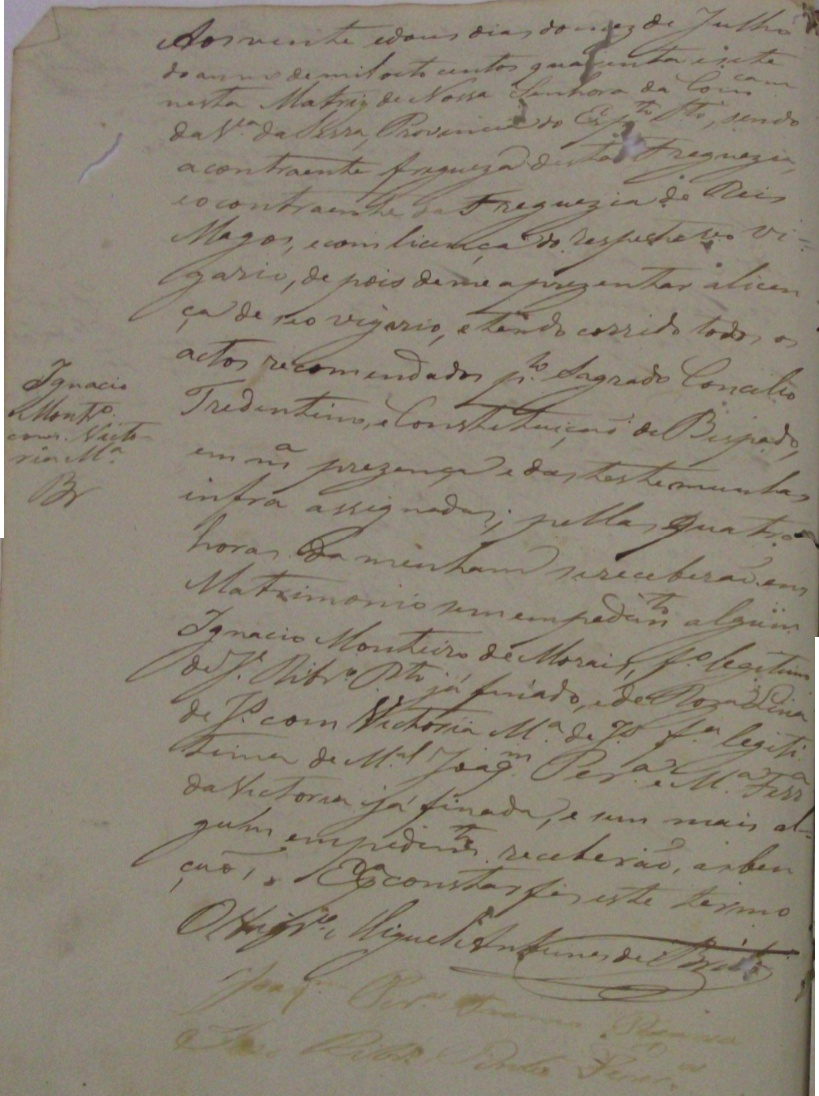 Aos vinte e dous dias do mez de Julho
do anno de mil oito centos quarenta e sete
nesta Matriz de Nossa Senhora da Com cam
da Va da Serra, Provincia do Espto Sto, sendo
a contraente fregueza desta Freguezia,
e o contraente da Freguezia de Reis
Magos, e com licença do respectivo Vi-
gario, de pois de me aprezentar a licen
ça de seo vigario, e tendo corrido todos os
actos recomendados po Sagrado Concilio
Tredentino, e Constetuiçaõ do Bispado,
em ma prezença e das testemunhas
infra assignadas; pellas quatro
horas da menham se receberaõ em
Matrimonio sem empedimto algum
Ignacio Monteiro de Morais, fo legitimo
de Je Ribro Pto já finado, e de Roza Lina
de Js. com Victoria Ma de Js fa legiti
tima de Mel Joaqm Pera e Ma Ferra
da Victoria já finada, e sem mais al-
gum empedimto receberaõ, as ben
çaõs, Ea constar fis este termo
O Vigro Miguel Antunes de Brito
Joaqm Pera
João Ribro Pinto
Ignacio
Montro
com Victo-
ria Ma
Br